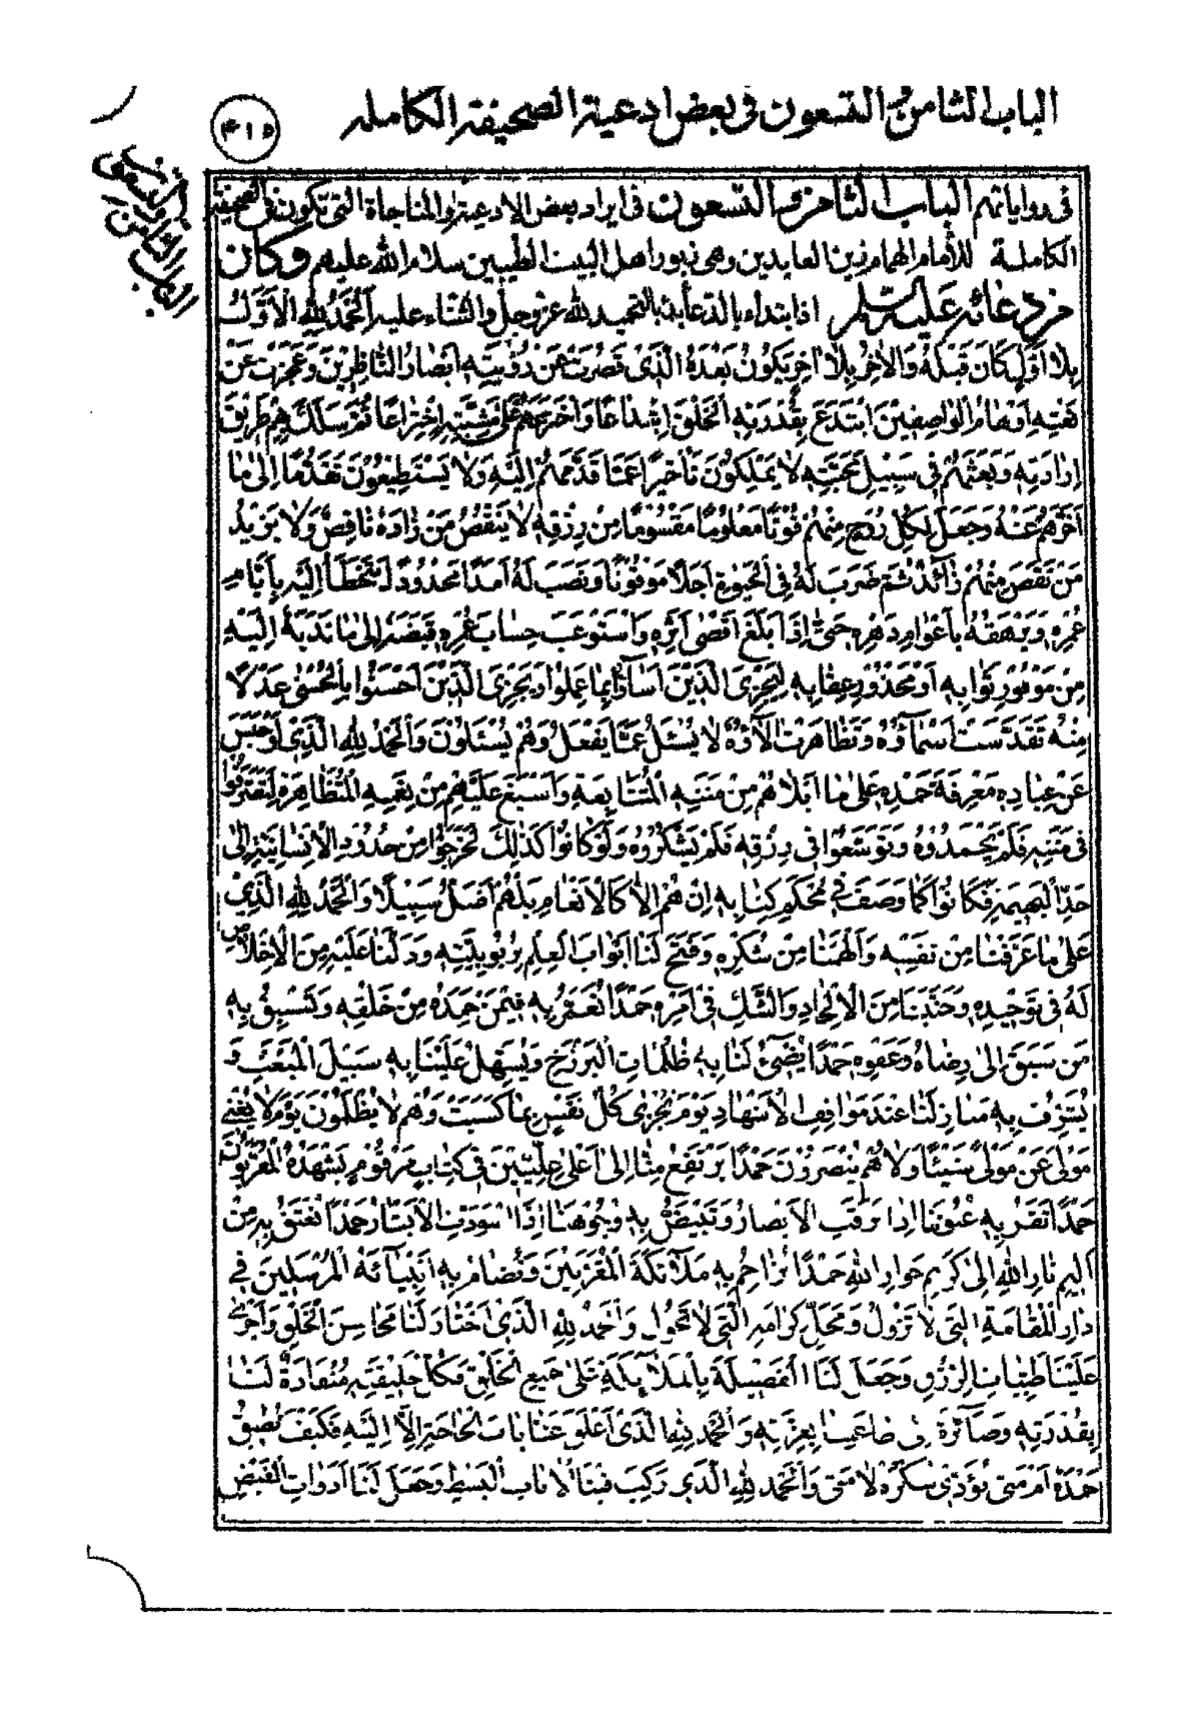 الباب الثامن و التسعون فی بعض ادعیة الصحیفة الکامله
۴۱۵
الباب الثامن والتسعون
فی روایاتهم الباب الثامن والتسعون فی ایراد بعض الادعیة والمناجاة التی تکون فی الصحیفة
الکاملة للأمام الهمام زین العابدین وهی زبور اهل البیت الطیبین سلام الله علیهم وکان
من دعائه علیه السلام اذا ابتداء بالدعاء بدء بالتحمید لله عز وجل والثناء علیه اَلْحَمْدُ لِلّٰهِ الْاَوَّلِ
بِلَا اَوَّلٍ کَانَ قَبْلَهُ وَالْاٰخِرِ بِلَا اٰخِرٍ یَکُوْنُ بَعْدَهُ الَّذِیْ قَصُرَتْ عَنْ رُؤْیَتِهِ اَبْصَارُ النَّاظِرِیْنَ وَعَجَزَتْ عَنْ
نَعْتِهِ اَوْهَامُ الْوَاصِفِیْنَ ابْتَدَعَ بِقُدْرَتِهِ الْخَلْقَ ابْتِدَاعًا وَاخْتَرَعَهُمْ عَلٰی مَشِیَّتِهِ اخْتِرَاعًا ثُمَّ سَلَکَ بِهِمْ طَرِیْقَ
اِرَادَتِهِ وَبَعَثَهُمْ فِی سَبِیْلِ مَحَبَّتِهِ لَا یَمْلِکُوْنَ تَأْخِیْرًا عَمَّا قَدَّمَهُمْ اِلَیْهِ وَلَا یَسْتَطِیْعُوْنَ تَقَدُّمًا اِلٰی مَا
اَخَّرَهُمْ عَنْهُ وَجَعَلَ لِکُلِّ رُوْحٍ مِنْهُمْ قُوْتًا مَعْلُوْمًا مَقْسُوْمًا مِنْ رِزْقِهِ لَا یَنْقُصُ مَنْ زَادَهُ نَاقِصٌ وَلَا یَزِیْدُ
مَنْ نَقَصَ مِنْهُمْ زَائِدٌ ثُمَّ ضَرَبَ لَهُ فِی الْحَیٰوةِ اَجَلًا مَوْقُوْتًا وَنَصَبَ لَهُ اَمَدًا مَحْدُوْدًا یَتَخَطَّأُ اِلَیْهِ بِاَیَّامِ
عُمُرِهِ وَیَرْهَقُهُ بِاَعْوَامِ دَهْرِهِ حَتّٰی اِذَا بَلَغَ اَقْصٰی اَثَرِهِ وَاسْتَوْعَبَ حِسَابَ عُمُرِهِ قَبَضَهُ اِلٰی مَا نَدَبَهُ اِلَیْهِ
مِنْ مَوْفُوْرِ ثَوَابِهِ اَوْ مَحْذُوْرِ عِقَابِهِ لِیَجْزِیَ الَّذِیْنَ اَسَآؤُا بِمَا عَمِلُوْا وَیَجْزِیَ الَّذِیْنَ اَحْسَنُوْا بِالْحُسْنٰی عَدْلًا
مِنْهُ تَقَدَّسَتْ اَسْمَآؤُهُ وَتَظَاهَرَتْ اٰلَآؤُهُ لَا یُسْئَلُ عَمَّا یَفْعَلُ وَهُمْ یُسْئَلُوْنَ وَالْحَمْدُ لِلّٰهِ الَّذِیْ لَوْ حَبَسَ
عَنْ عِبَادِهِ مَعْرِفَةَ حَمْدِهِ عَلٰی مَا اَبْلَاهُمْ مِنْ مِنَنِهِ الْمُتَتَابِعَةِ وَاَسْبَغَ عَلَیْهِمْ مِنْ نِعَمِهِ الْمُتَظَاهِرَةِ لَتَصَرَّفُوْا
فِی مِنَنِهِ فَلَمْ یَحْمَدُوْهُ وَتَوَسَّعُوْا فِی رِزْقِهِ فَلَمْ یَشْکُرُوْهُ وَلَوْ کَانُوْا کَذٰلِکَ لَخَرَجُوْا مِنْ حُدُوْدِ الْاِنْسَانِیَّةِ اِلٰی
حَدِّ الْبَهِیْمِیَّةِ فَکَانُوْا کَمَا وَصَفَ فِی مُحْکَمِ کِتَابِهِ اِنْ هُمْ اِلَّا کَالْاَنْعَامِ بَلْ هُمْ اَضَلُّ سَبِیْلًا وَالْحَمْدُ لِلّٰهِ الَّذِیْ
عَلٰی مَا عَرَّفَنَا مِنْ نَفْسِهِ وَاَلْهَمَنَا مِنْ شُکْرِهِ وَفَتَحَ لَنَا اَبْوَابَ الْعِلْمِ بِرُبُوْبِیَّتِهِ وَدَلَّنَا عَلَیْهِ مِنَ الْاِخْلَاصِ
لَهُ فِی تَوْحِیْدِهِ وَجَنَّبَنَا مِنَ الْاِلْحَادِ وَالشَّکِّ فِی اَمْرِهِ حَمْدًا نُعَمَّرُ بِهِ فِیْمَنْ حَمِدَهُ مِنْ خَلْقِهِ وَنَسْبِقُ بِهِ
مَنْ سَبَقَ اِلٰی رِضَاهُ وَعَفْوِهِ حَمْدًا یُضِیْءُ لَنَا بِهِ ظُلُمَاتِ الْبَرْزَخِ وَیُسَهِّلُ عَلَیْنَا بِهِ سَبِیْلَ الْمَبْعَثِ وَ
یُشَرِّفُ بِهِ مَنَازِلَنَا عِنْدَ مَوَاقِفِ الْاَشْهَادِ یَوْمَ تُجْزٰی کُلُّ نَفْسٍ بِمَا کَسَبَتْ وَهُمْ لَا یُظْلَمُوْنَ یَوْمَ لَا یُغْنِی
مَوْلًی عَنْ مَوْلًی شَیْئًا وَلَا هُمْ یُنْصَرُوْنَ حَمْدًا یَرْتَفِعُ مِنَّا اِلٰی اَعْلٰی عِلِّیِّیْنَ فِی کِتَابٍ مَرْقُوْمٍ یَشْهَدُهُ الْمُقَرَّبُوْنَ
حَمْدًا تَقَرُّ بِهِ عُیُوْنُنَا اِذَا بَرِقَتِ الْاَبْصَارُ وَتَبْیَضُّ بِهِ وُجُوْهُنَا اِذَا اسْوَدَّتِ الْاَبْشَارُ حَمْدًا نُعْتَقُ بِهِ مِنْ
اَلِیْمِ نَارِ اللهِ اِلٰی کَرِیْمِ جِوَارِ اللهِ حَمْدًا نُزَاحِمُ بِهِ مَلَآئِکَتَهُ الْمُقَرَّبِیْنَ وَنُضَامُّ بِهِ اَنْبِیَآئَهُ الْمُرْسَلِیْنَ فِی
دَارِ الْمُقَامَةِ الَّتِی لَا تَزُوْلُ وَمَحَلِّ کَرَامَتِهِ الَّتِی لَا تَحُوْلُ وَالْحَمْدُ لِلّٰهِ الَّذِی اخْتَارَ لَنَا مَحَاسِنَ الْخَلْقِ وَاَجْرٰی
عَلَیْنَا طَیِّبَاتِ الرِّزْقِ وَجَعَلَ لَنَا الْفَضِیْلَةَ بِالْمَلَکَةِ عَلٰی جَمِیْعِ الْخَلْقِ فَکُلُّ خَلِیْقَتِهِ مُنْقَادَةٌ لَنَا
بِقُدْرَتِهِ وَصَآئِرَةٌ اِلٰی طَاعَتِنَا بِعِزَّتِهِ وَالْحَمْدُ لِلّٰهِ الَّذِی اَغْلَقَ عَنَّا بَابَ الْحَاجَةِ اِلَّا اِلَیْهِ فَکَیْفَ نُطِیْقُ
حَمْدَهُ اَمْ مَتٰی نُؤَدِّی شُکْرَهُ لَا مَتٰی وَالْحَمْدُ لِلّٰهِ الَّذِی رَکَّبَ فِیْنَا اٰلَاتِ الْبَسْطِ وَجَعَلَ لَنَا اَدَوَاتِ الْقَبْضِ